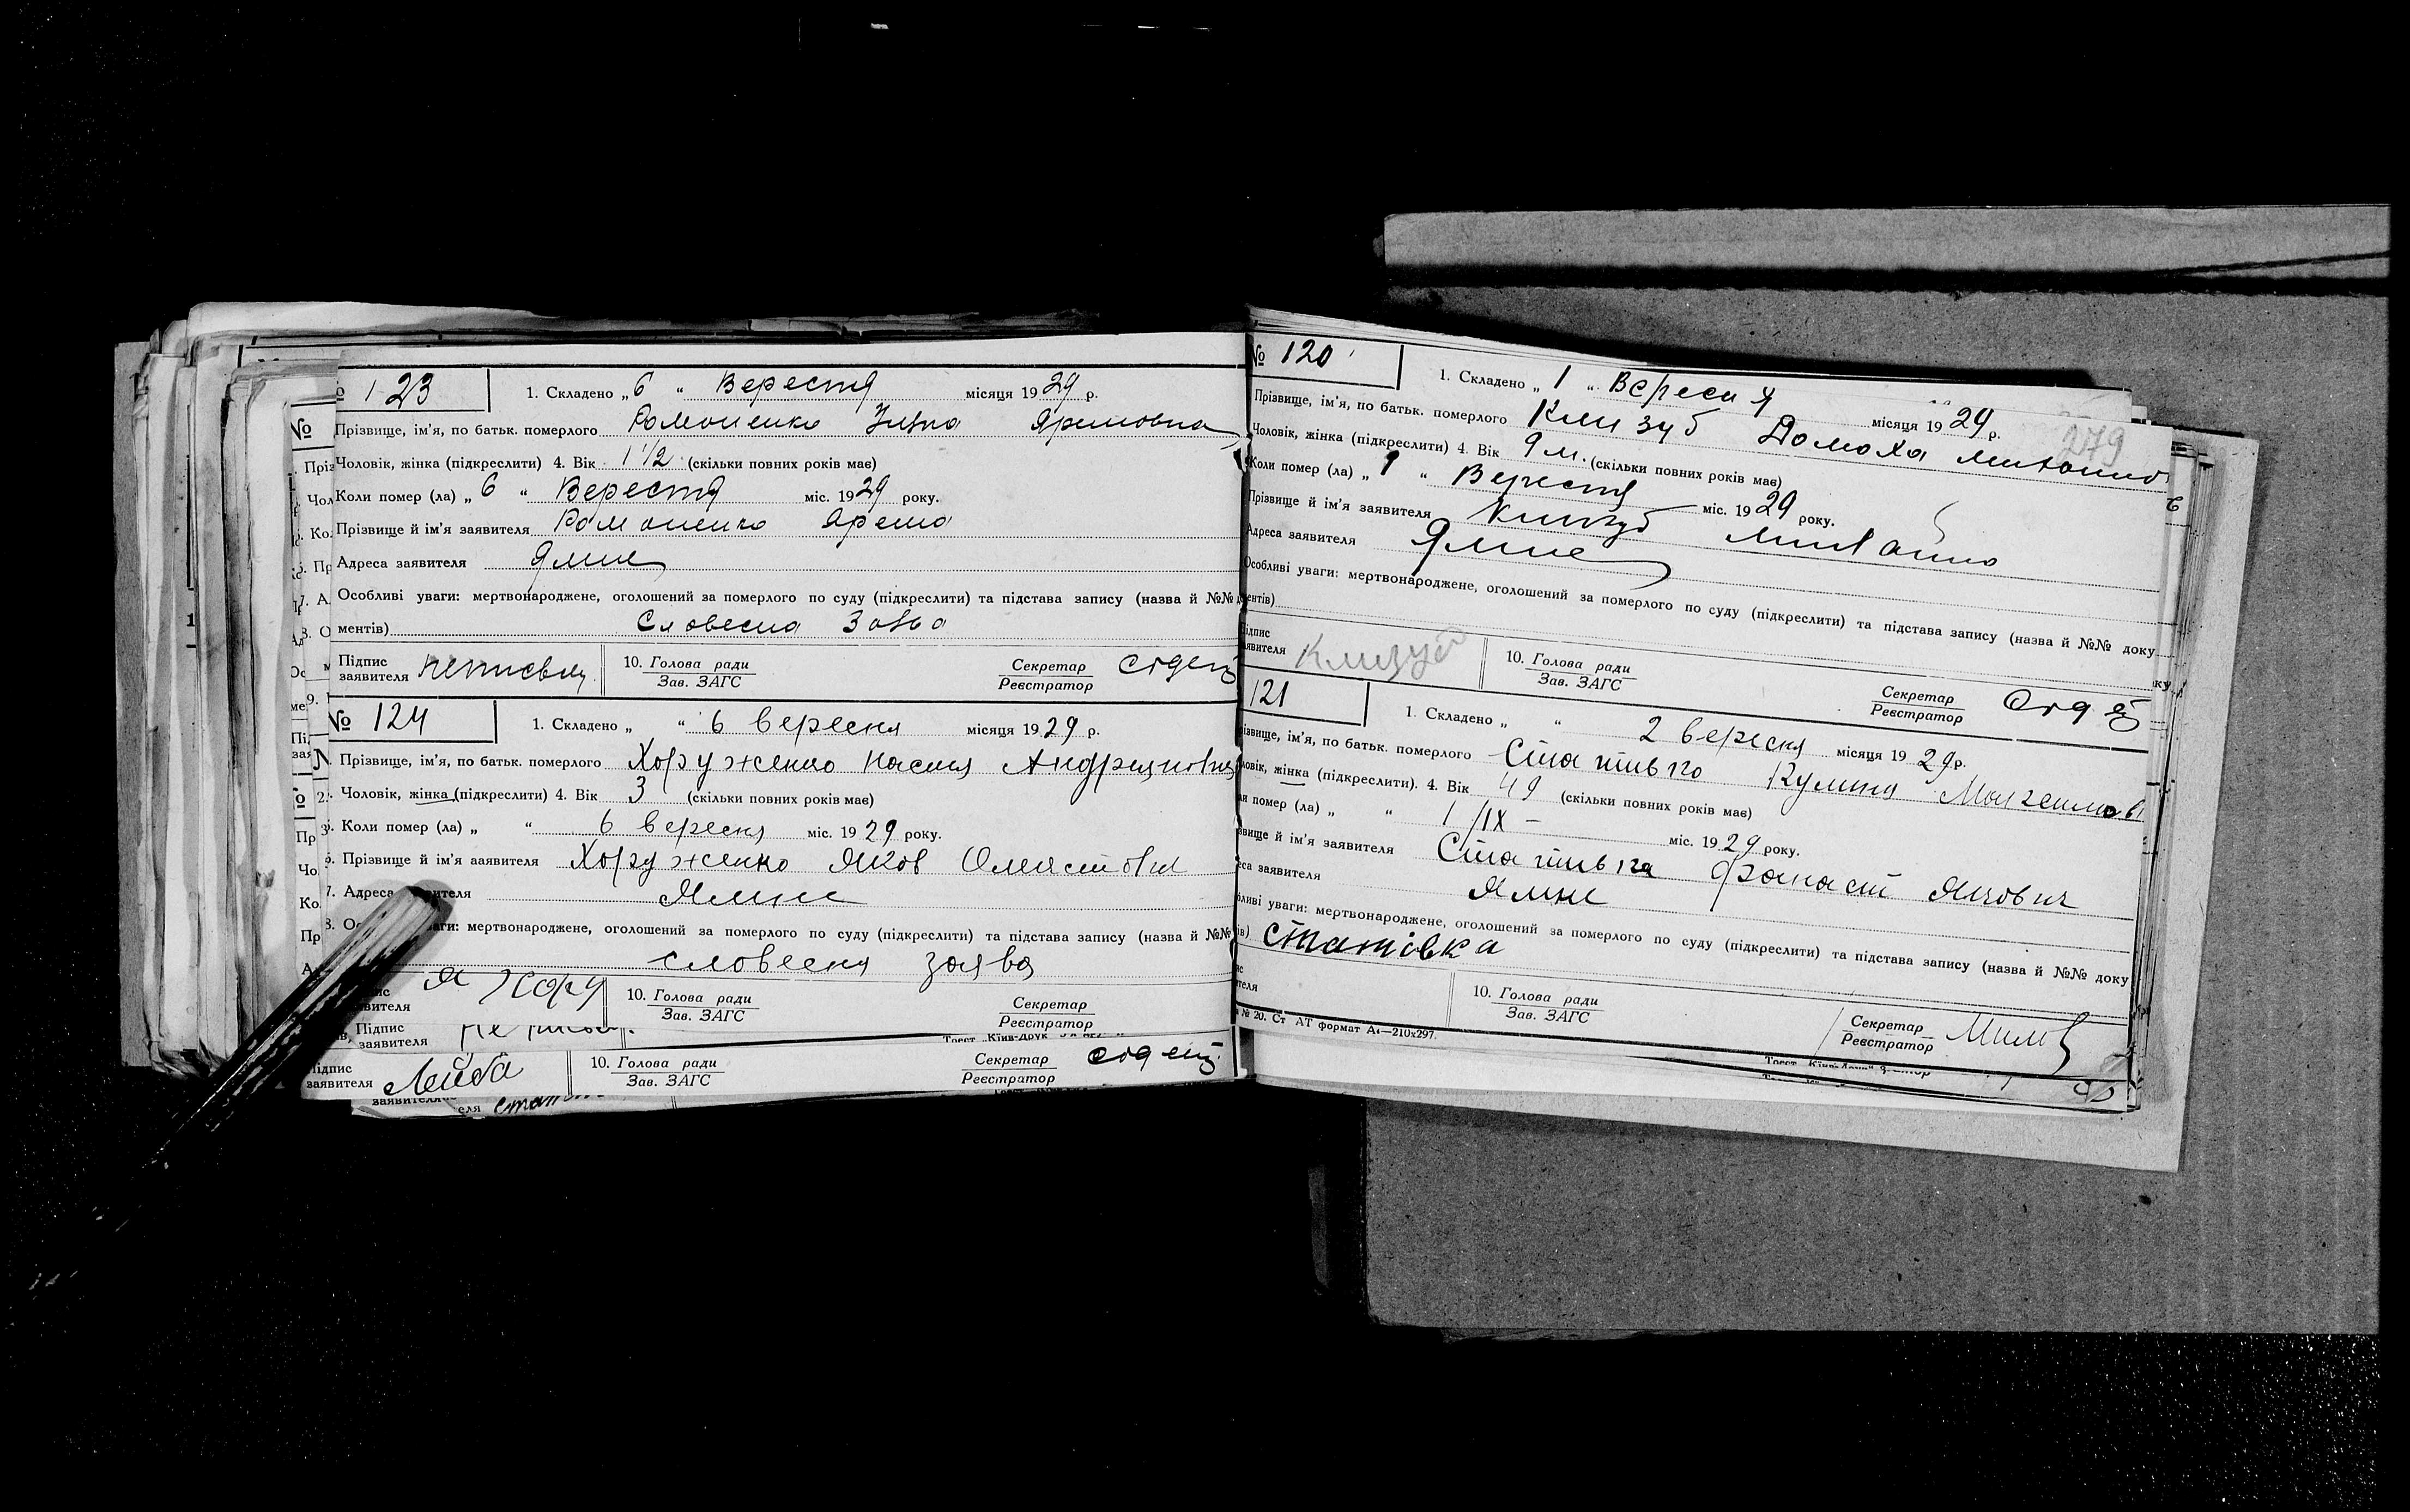 № 123 1. Складено „ 6 “ Вересня місяця 1929 р.
Прізвище, ім'я, по батьк. померлого Романенко Яремовна
Чоловік, жінка (підкреслити) 4. Вік 1 1/2 (скільки повних років має)
Коли помер (ла) „ 6 “ Вересня міс. 1929 року.
Прізвище й ім'я заявителя Романенко Ярема
Адреса заявителя Ямне
Особливі уваги: мертвонароджене, оголошений за померлого по суду (підкреслити) та підстава запису (назва й №№
ментів) Словесна Заява
Підпис заявителя 10. Голова ради Зав. ЗАГС Секретар Реєстратор
№ 124 1. Складено „ “ 6 вересня місяця 1929 р.
Прізвище, ім'я, по батьк. померлого Хоруженко Настя
Чоловік, жінка (підкреслити) 4. Вік 3 (скільки повних років має)
Коли помер (ла) „ “ 6 вересня міс. 1929 року.
Прізвище й ім'я заявителя Хоруженко Яков
7. Адреса Ямне
мертвонароджене, оголошений за померлого по суду (підкреслити) та підстава запису (назва й №№
словесна заява
заявителя Я Хору 10. Голова ради Зав. ЗАГС Секретар Реєстратор
Підпис заявителя
Підпис заявителя 10. Голова ради Зав. ЗАГС Секретар Реєстратор
№ 120 1. Складено „ 1 “ Вересня місяця 1929 р.
279
Прізвище, ім'я, по батьк. померлого Клизуб Домаха
Чоловік, жінка (підкреслити) 4. Вік 9 м. (скільки повних років має)
Коли помер (ла) „ 1 “ Вересня міс. 1929 року.
Прізвище й ім'я заявителя Клизуб Михайло
Адреса заявителя Ямне
Особливі уваги: мертвонароджене, оголошений за померлого по суду (підкреслити) та підстава запису (назва й №№ доку
ентів)
Підпис заявителя Клизуб 10. Голова ради Зав. ЗАГС Секретар Реєстратор
121 1. Складено „ “ 2 вересня місяця 1929 р.
ізвище, ім'я, по батьк. померлого Статівка Кулина
ловік, жінка (підкреслити). 4. Вік 49 (скільки повних років має)
помер (ла) „ “ 1/IX – міс. 1929 року.
звище й ім'я заявителя Статівка Якович
заявителя Ямне
уваги: мертвонароджене, оголошений за померлого по суду (підкреслити) та підстава запису (назва й №№ доку
ів) Статівка
10. Голова ради Зав. ЗАГС Секретар Реєстратор
№ 20. Ст АТ формат А4—210х297.